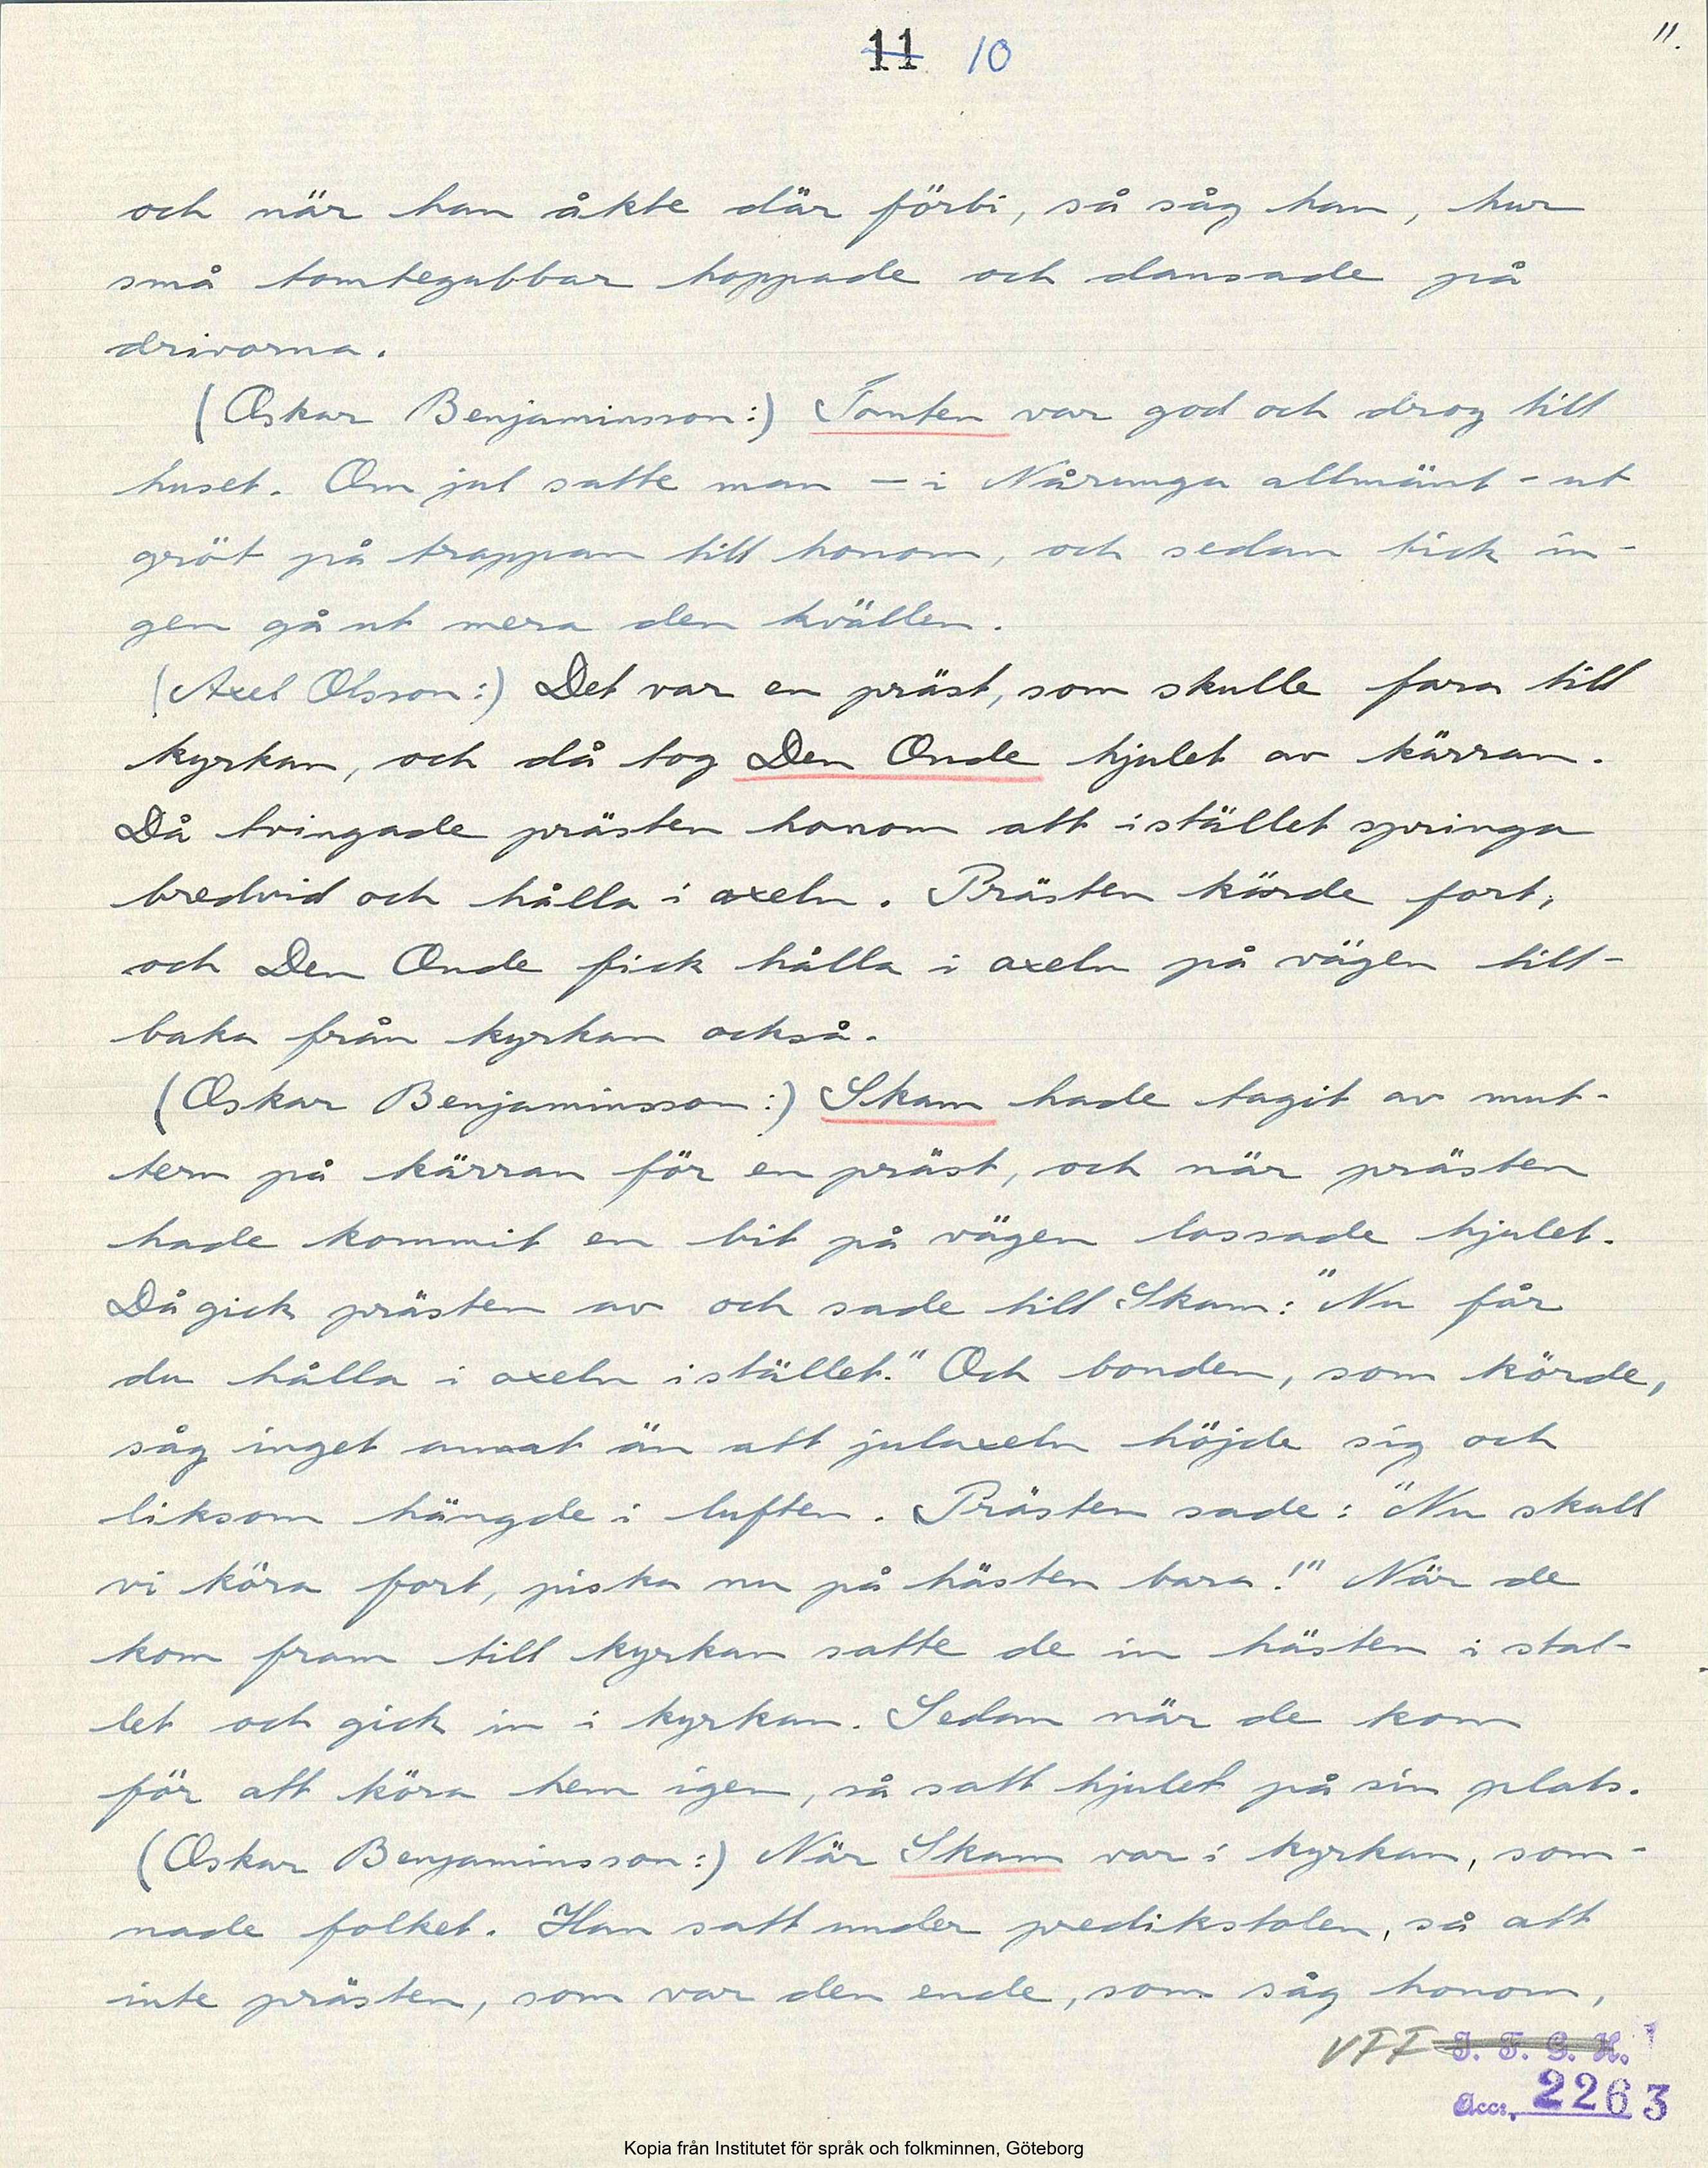 11 10
11.
och när han åkte där förbi, så såg han, hur
små tomtegubbar hoppade och dansade på
drivorna.
(Oskar Benjaminsson:) Tomten var god och drog till
huset. Om jul satte man – i Nårunga allmänt – ut
gröt på trappan till honom, och sedan fick in-
gen gå ut mera den kvällen.
(Axel Olsson:) Det var en präst, som skulle fara till
kyrkan, och då tog Den Onde hjulet av kärran.
Då tvingade prästen honom att istället springa
bredvid och hålla i axeln. Prästen körde fort,
och Den Onde fick hålla i axeln på vägen till-
baka från kyrkan också.
(Oskar Benjaminsson:) Skam hade tagit av mut-
tern på kärran för en präst, och när prästen
hade kommit en bit på vägen lossade hjulet.
Då gick prästen av och sade till Skam: "Nu får
du hålla i axeln istället." Och bonden, som körde,
såg inget annat än att julaxeln höjde sig och
liksom hängde i luften. Prästen sade: "Nu skall
vi köra fort, piska nu på hästen bara!" När de
kom fram till kyrkan satte de in hästen i stal-
let och gick in i kyrkan. Sedan när de kom
för att köra hem igen, så satt hjulet på sin plats.
(Oskar Benjaminsson:) När Skam var i kyrkan, som-
nade folket. Han satt under predikstolen, så att
inte prästen, som var den ende, som såg honom,
VFF I. F. G. H.
Acc. 2263
Kopia från Institutet för språk och folkminnen, Göteborg